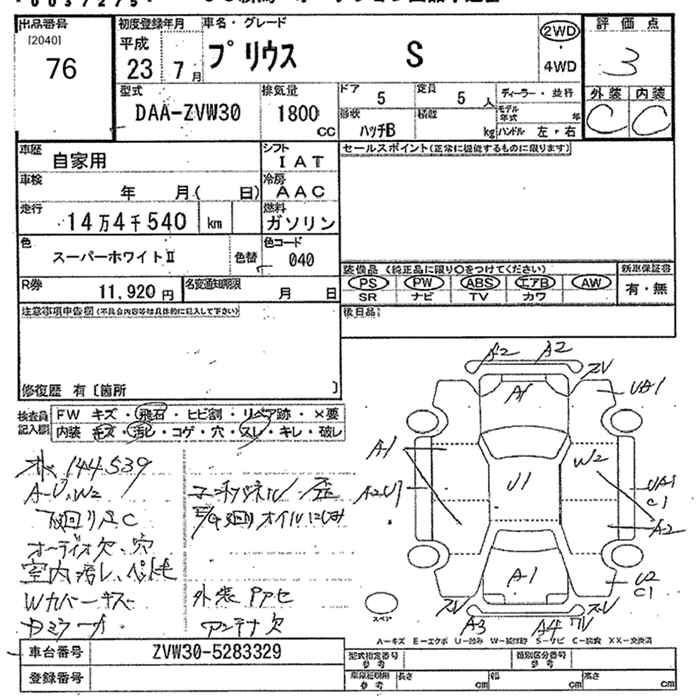 出品番号
[2040]
76
初度登録年月
平成
23 7月
車名・グレード
プリウス S
2WD
4WD
評価点
3
外装 内装
C C
型式
DAA-ZVW30
排気量
1800
CC
ドア
5
定員
5 人
ディーラー・並行
形状
ハッチB
積載
kg
モデル年式 年
ハンドル 左・右
車歴
自家用
シフト
IAT
車検
年 月( 日)
冷房
AAC
走行
14万4千540 km
燃料
ガソリン
色
スーパーホワイトⅡ
色替
色コード
040
R券
11,920 円
名変通知期限
月 日
セールスポイント(正常に機能するものに限ります)
装備品 (純正品に限り○をつけてください)
PS PW ABS エアB AW
SR ナビ TV カワ
新車保証書
有・無
後日品
注意事項申告欄(不具合内容等は具体的に記入して下さい)
修復歴 有〔箇所 〕
検査員記入欄
FW キズ・飛石・ヒビ割・リペア跡・×要
内装 キズ・汚レ・コゲ・穴・スレ・キレ・破レ
144539
A-U.W2
下回りサビC
オーディオ欠、穴
Wカバーキズ
オイルにじみ
アンテナ欠
A2 A2
A1
UA1
A1
A2U1
U1
W2
UA1
C1
A2
A1
U2
C1
A3 A4
スペア
A-キズ E-エクボ U-凹み W-補修跡 S-サビ C-腐食 XX-交換済
車台番号
ZVW30-5283329
登録番号
型式指定番号
参考
類別区分番号
参考
車庫証明用
参考
長さ cm 幅 cm 高さ cm